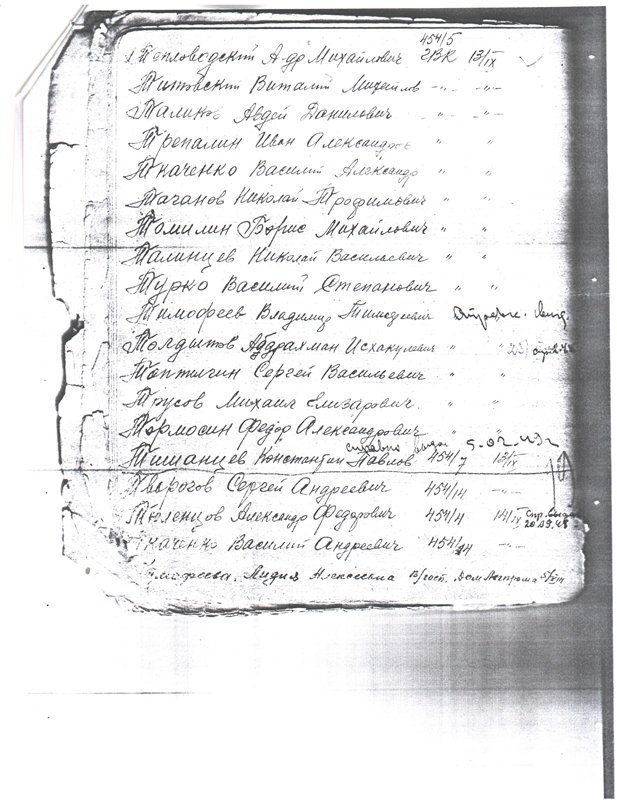 454/5
Тепловодский А-др Михайлович ЭВК 13/IX
Титовский Виталий Михайлов -"- -"-
Таликов Авдей Данилович -"- -"-
Трепалин Иван Александров " "
Ткаченко Василий Александр " "
Таганов Николай Трофимович " "
Томилин Борис Михайлович " "
Талинцев Николай Васильевич " "
Турко Василий Степанович " "
Тимофеев Владимир
Толдытов Абдрахман Исхакулевич " "
Топтыгин Сергей Васильевич " "
Трусов Михаил Елизарович " "
Тормосин Федор Александрович " "
справка выдан 5.02.49г
Тишанцев Константин Павлов 454/7 13/IX
Творогов Сергей Андреевич 454/14 -"-
Тюленцов Александр Федорович 454/4 14/IX Спр. выдан
20.09.48
Ткаченко Василий Андреевич 454/14 -"-
Тимофеева Лидия Алексеевна В/госп. Дом Легпрома 5/VIII